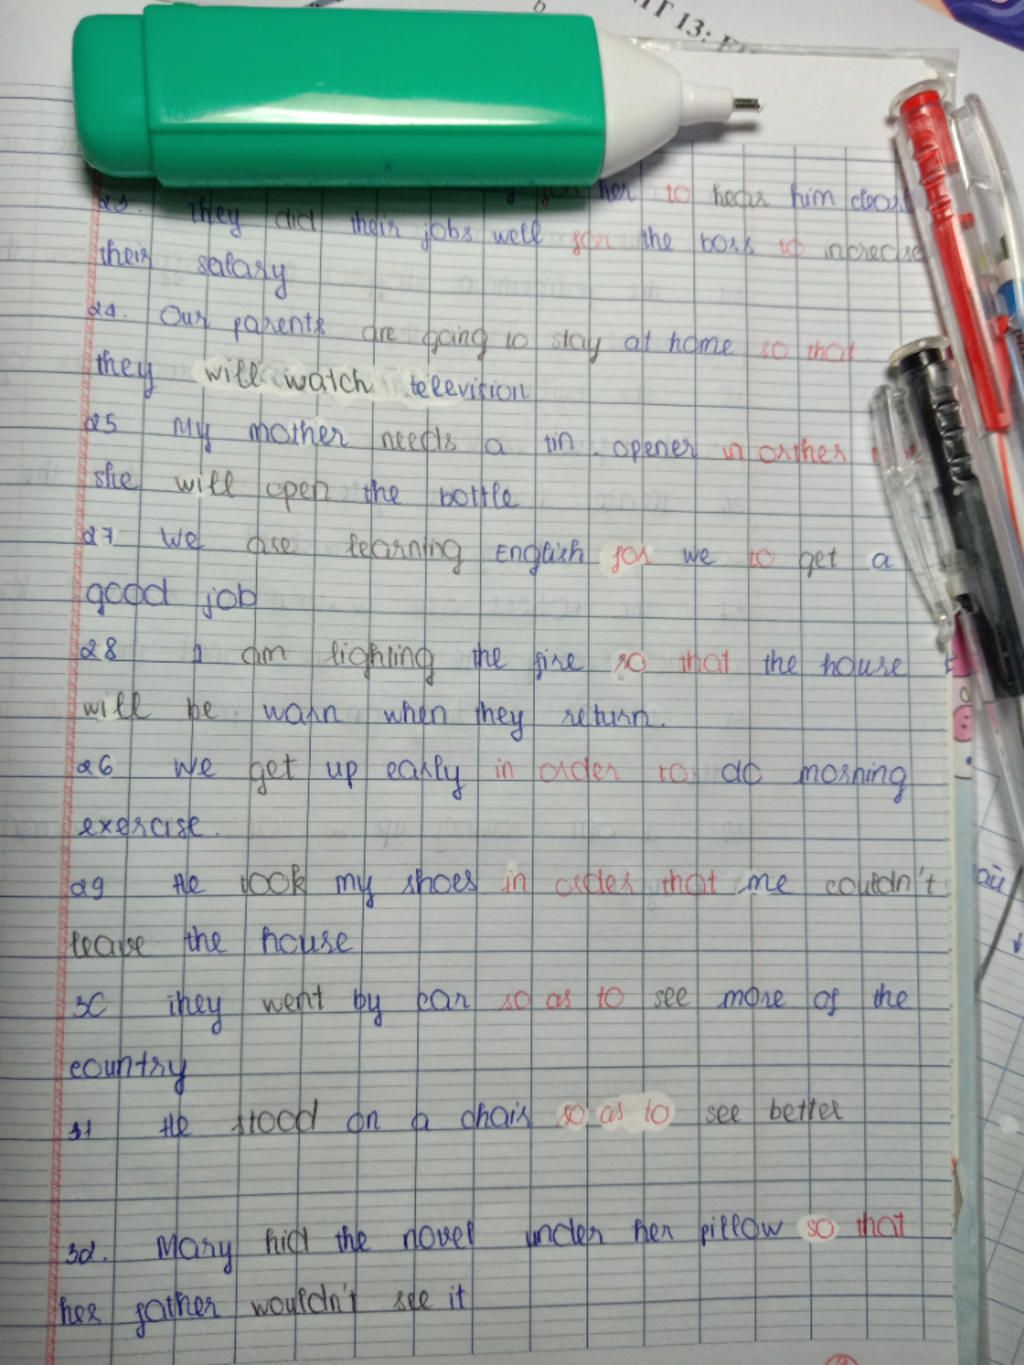 b
T 13:
her to hear him
23. They did their jobs well for the boss to increase
their salary
24. Our parents are going to stay at home so that
they will watch television
25 My mother needs a tin opener in orther
she will open the bottle
27 We are learning English for we to get a
good job
28 I am lighting the fire so that the house
will be warn when they return.
26 We get up early in order to do morning
exercise.
29 He took my shoes in order that me couldn't
leave the house
30 They went by car so as to see more of the
country
31 He stood on a chair so as to see better
32. Mary hid the novel under her pillow so that
her father wouldn't see it